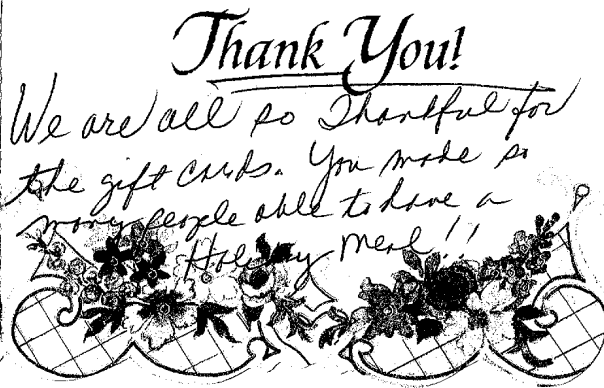 Thank You!
We are all so Thankful for
the gift cards. You made so
many people able to have a
Holiday Meal!!